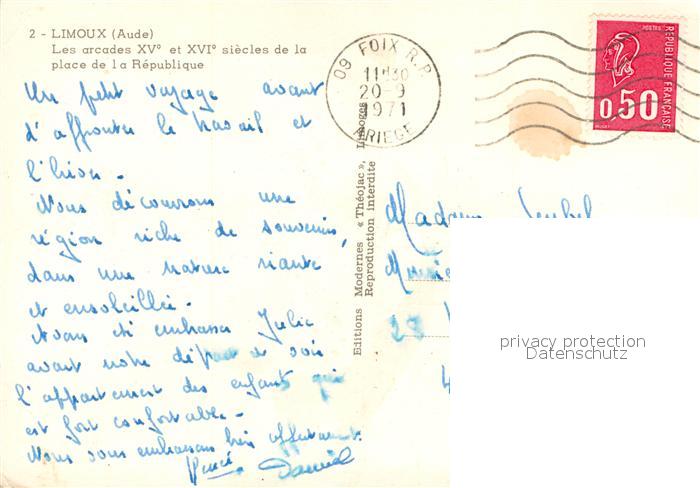 2 - LIMOUX (Aude)
Les arcades XVº et XVIº siècles de la
place de la République
Un petit voyage avant
d'affronter le travail et
l'hiver -
Nous découvrons une
région riche de souvenirs,
dans une nature riante
et ensoleillée -
Avons été embrasser Julie
avant notre départ et voir
l'appartement des enfants qui
est fort confortable -
Nous vous embrassons bien affectueusement.
Daniel
09 FOIX R.P.
11H30
20-9
1971
ARIEGE
Editions Modernes « Théojac », Limoges
Reproduction interdite
POSTES
REPUBLIQUE FRANÇAISE
0,50
Madame
28
privacy protection
Datenschutz